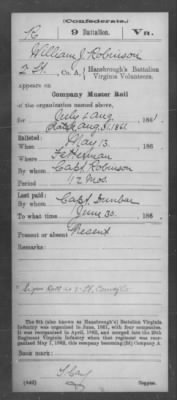 (Confederate.)
R 9 Battalion. Va.
William J. Robinson
2 Lt., Co. A, Hansbrough's Battalion
Virginia Volunteers.
appears on
Company Muster Roll
of the organization named above,
for July & Aug, 1861
Enlisted:
When May 13
Where Fetterman
By whom Capt Robinson
Period 12 Mos.
Last paid:
By whom Capt. Dunbar
To what time June 30 186
Present or absent Present
Remarks:
The 9th (also known as Hansbrough's) Battalion Virginia
Infantry was organized in June, 1861, with four companies.
It was reorganized in April, 1862, and merged into the 25th
Regiment Virginia Infantry when that regiment was reorganized
May 1, 1862, this company becoming (2d) Company A.
Book mark:
(642) Copyist.